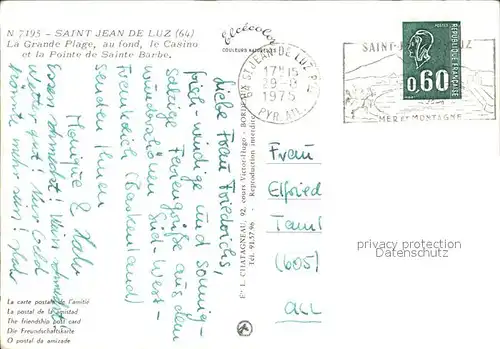 N 7195 - SAINT JEAN DE LUZ (64)
La Grande Plage, au fond, le Casino
et la Pointe de Sainte Barbe.
Elcécolor
COULEURS NATURELLES
64 ST JEAN DE LUZ PPAL
17H15
9-8
1975
PYR. ATL.
SAINT-J LUZ
MER et MONTAGNE
POSTES
0,60
REPUBLIQUE FRANÇAISE
Liebe Frau Friedrichs,
und sonnig-
salzige Feriengrüße aus dem
Süd-West-
Frankreich (Baskenland)
senden Ihnen
Monique & Halu
Essen schmeckt! Wein schmeckt!
Wetter gut! Nur Geld
könnte mehr sein!
Ets L. CHATAGNEAU, 92, cours Victor-Hugo - BORDEAUX
Tél. 91.57.96 Reproduction interdite
Frau
Elfried
Taml
(605)
ALL
privacy protection
Datenschutz
La carte postale de l'amitié
La postal de la amistad
The friendship post card
Die Freundschaftskarte
O postal da amizade